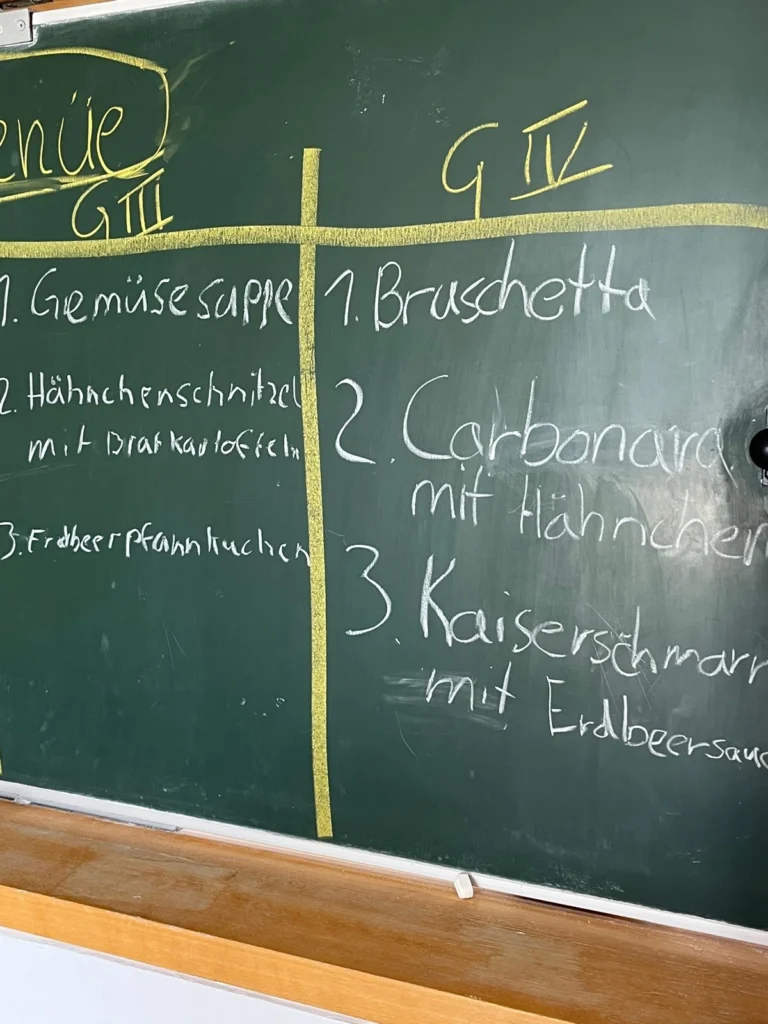 enüe
G III
1. Gemüsesuppe
2. Hähnchenschnitzel
mit Bratkartoffeln
3. Erdbeerpfannkuchen
G IV
1. Bruschetta
2. Carbonara
mit Hähnchen
3. Kaiserschmarr
mit Erdbeersauc